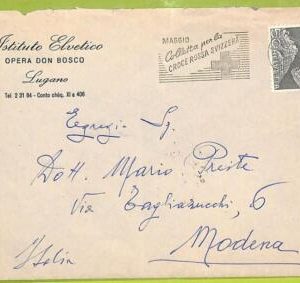 Istituto Elvetico
OPERA DON BOSCO
Lugano
Tel. 2 31 84 - Conto chèq. XI a 406
MAGGIO
Colletta per la
CROCE ROSSA SVIZZERA
HELVETIA
Egregio Sg.
Dott. Mario Prete
Via Tagliazucchi, 6
Modena
Italia